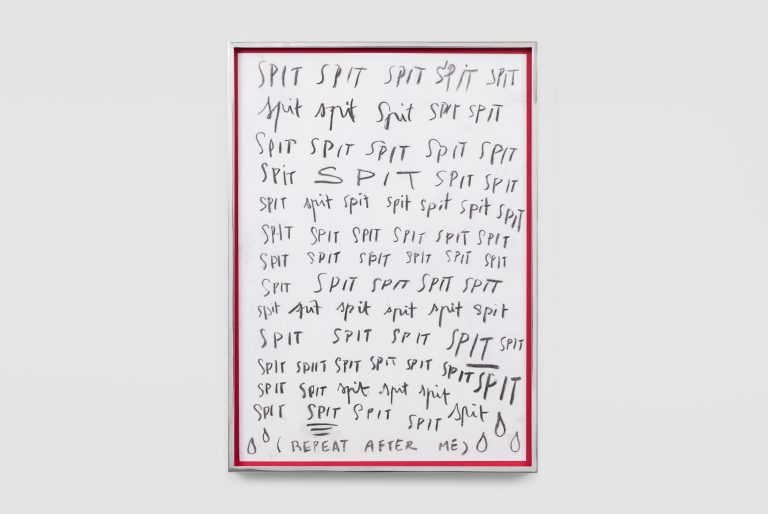 SPIT SPIT SPIT SPIT SPIT
spit spit Spit SPIT SPIT
SPIT SPIT SPIT SPIT SPIT
SPiT SPIT SPIT SPIT
SPIT spit spit spit spit spit SPIT
SPIT SPIT SPIT SPIT SPIT SPIT
SPIT SPIT SPIT SPIT SPIT SPIT
SPIT SPIT SPIT SPIT SPIT
spit spit spit spit spit spit
SPIT SPIT SPIT SPIT SPIT
SPIT SPIIT SPIT SPIT SPIT SPIT SPIT
SPIT SPIT spit spit spit
SPIT SPIT SPIT SPIT spit
(REPEAT AFTER ME)